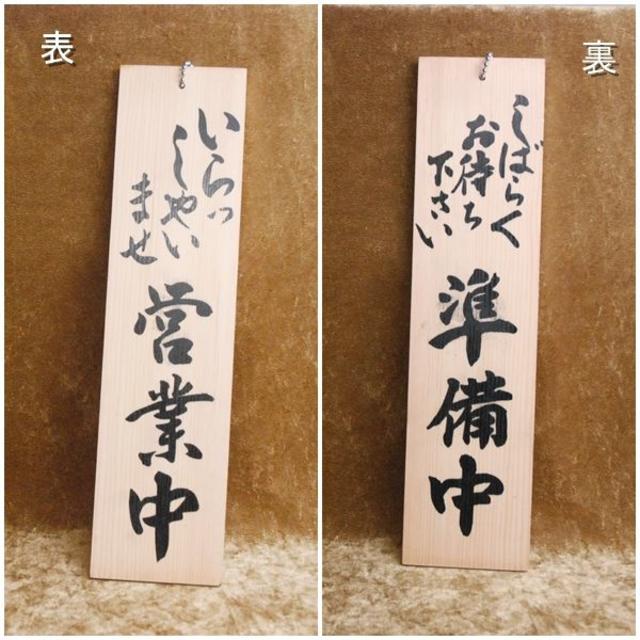 表
いらっ
しゃい
ませ
営業中
裏
しばらく
お待ち
下さい
準備中